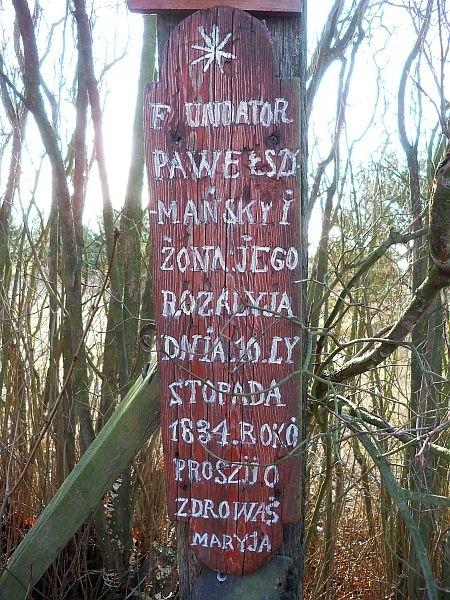 FUNDATOR
PAWEŁSZY
MAŃSKY I
ŻONA.JEGO
ROZALYJA
DNIA.10.LY
STOPADA
1834.ROKÓ
PROSZIJO
ZDROWAŚ
MARYJA